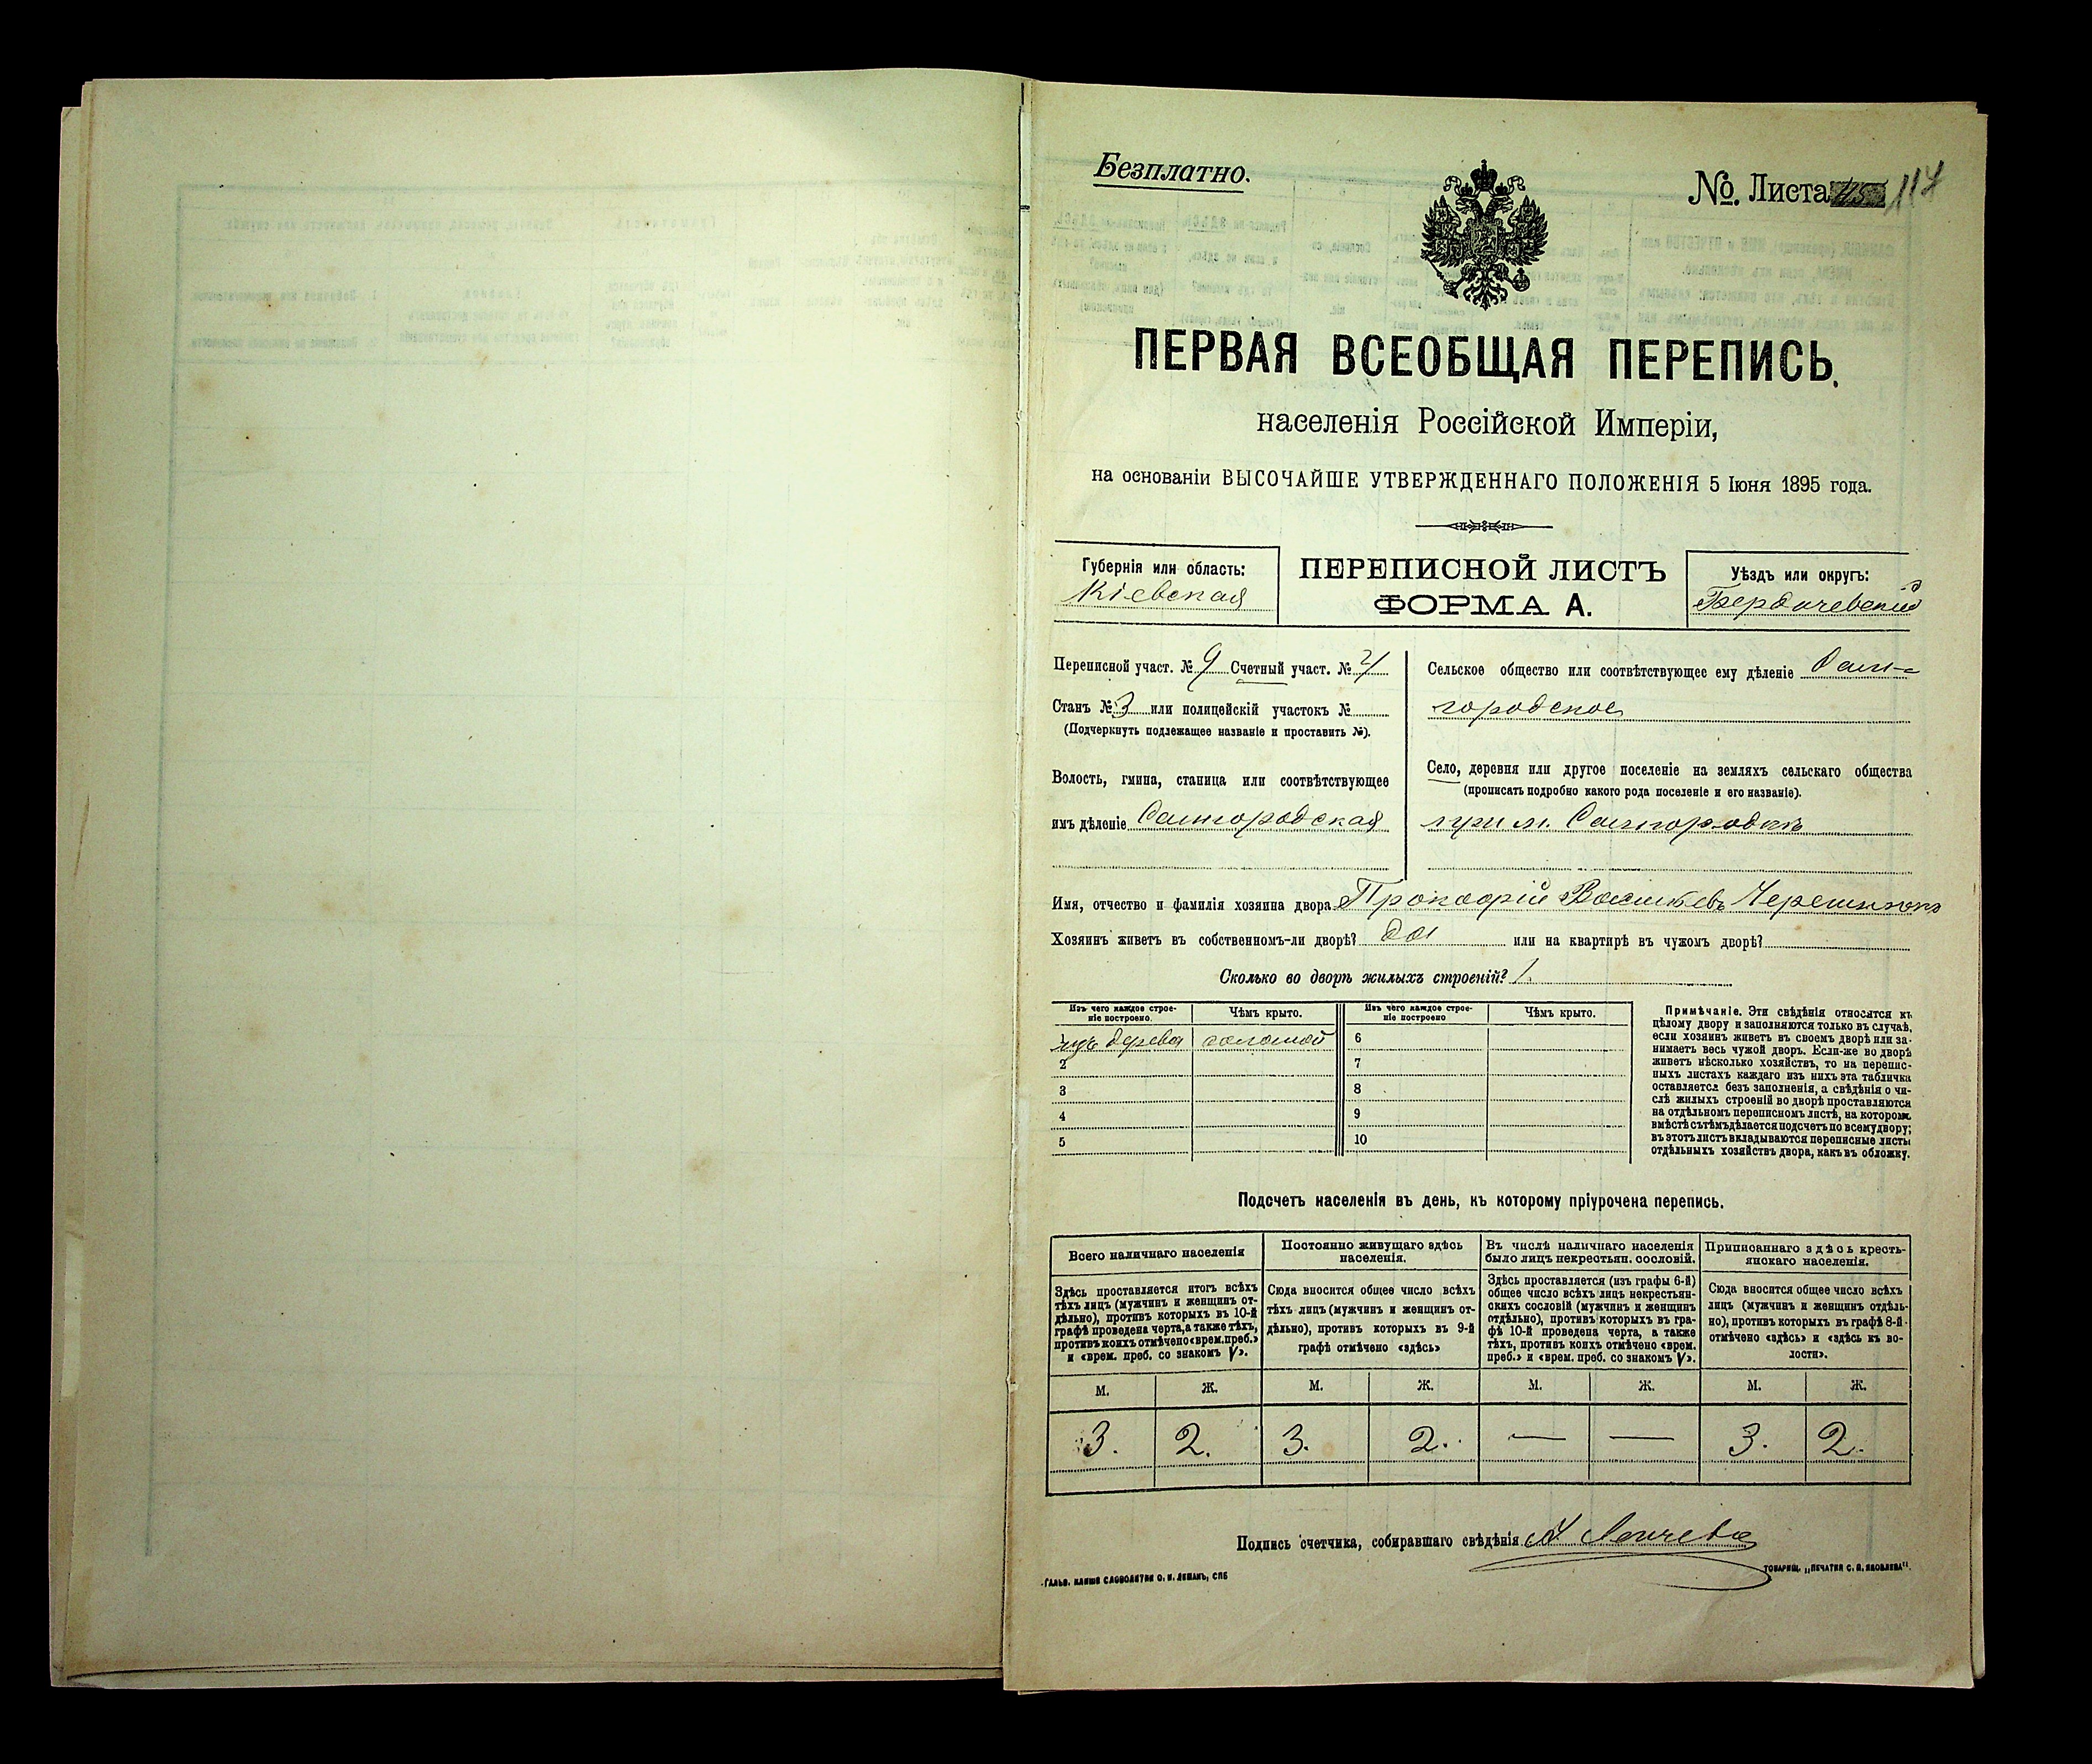 Безплатно.
№. Листа 117
ПЕРВАЯ ВСЕОБЩАЯ ПЕРЕПИСЬ
населенія Россійской Имперіи,
на основаніи ВЫСОЧАЙШЕ УТВЕРЖДЕННАГО ПОЛОЖЕНІЯ 5 Іюня 1895 года.
Губернія или область:
Кіевская
ПЕРЕПИСНОЙ ЛИСТЪ
ФОРМА А.
Уѣздъ или округъ:
Бердичевскій
Переписной участ. № 9 Счетный участ. № 21
Станъ № 3 или полицейскій участокъ №
(Подчеркнуть подлежащее названіе и проставить №).
Волость, гмина, станица или соотвѣтствующее
имъ дѣленіе Самгородская
Сельское общество или соотвѣтствующее ему дѣленіе Сам-
городское
Село, деревня или другое поселеніе на земляхъ сельскаго общества
(прописать подробно какого рода поселеніе и его названіе).
при м. Самгородкѣ
Имя, отчество и фамилія хозяина двора Прокофій Васильевъ
Хозяинъ живетъ въ собственномъ-ли дворѣ? да или на квартирѣ въ чужомъ дворѣ?
Сколько во дворѣ жилыхъ строеній? 1.
Изъ чего каждое строе-
ніе построено.
Чѣмъ крыто.
Изъ чего каждое строе-
ніе построено
Чѣмъ крыто.
изъ дерева соломой 6
2 7
3 8
4 9
5 10
Примѣчаніе. Эти свѣдѣнія относятся къ
цѣлому двору и заполняются только въ случаѣ,
если хозяин живетъ въ своемъ дворѣ или за-
нимаетъ весь чужой дворъ. Если-же во дворѣ
живетъ нѣсколько хозяйствъ, то на перепис-
ныхъ листахъ каждаго изъ нихъ эта табличка
оставляется безъ заполненія, а свѣдѣнія о чи-
слѣ жилыхъ строеній во дворѣ проставляются
на отдѣльномъ переписномъ листѣ, на котором
вмѣстѣ съ тѣмъ дѣлается подсчетъ по всему двору;
въ этотъ листъ вкладываются переписные листы
отдѣльныхъ хозяйствъ двора, какъ въ обложку.
Подсчетъ населенія въ день, къ которому пріурочена перепись.
Всего наличнаго населенія
Постоянно живущаго здѣсь
населенія.
Въ числѣ наличнаго населенія
было лицъ некрестьян. сословій.
Приписаннаго здѣсь кресть-
янскаго населенія.
Здѣсь проставляется итогъ всѣхъ
тѣхъ лицъ (мужчинъ и женщинъ от-
дѣльно), противъ которыхъ въ 10-й
графѣ проведена черта, а также тѣхъ,
противъ коихъ отмѣчено «врем. преб.»
и «врем. преб. со знакомъ V».
Сюда вносится общее число всѣхъ
тѣхъ лицъ (мужчинъ и женщинъ от-
дѣльно), противъ которыхъ въ 9-й
графѣ отмѣчено «здѣсь»
Здѣсь проставляется (изъ графы 6-й)
общее число всѣхъ лицъ некрестьян-
скихъ сословій (мужчинъ и женщинъ
отдѣльно), противъ которыхъ въ гра-
фѣ 10-й проведена черта, а также
тѣхъ, противъ коихъ отмѣчено «врем.
преб.» и «врем. преб. со знакомъ V».
Сюда вносится общее число всѣхъ
лицъ (мужчинъ и женщинъ отдѣль-
но), противъ которыхъ въ графѣ 8-й
отмѣчено «здѣсь» и «здѣсь къ во-
лости».
М. Ж. М. Ж. М. Ж. М. Ж.
3. 2. 3. 2. — — 3. 2.
Подпись счетчика, собиравшаго свѣдѣнія
ГАЛЬВ. КЛИШЕ СЛОВОЛИТНИ О. И. ЛЕМАНЪ, СПБ
ТОВАРИЩ. „ПЕЧАТНЯ С. П. ЯКОВЛЕВА".